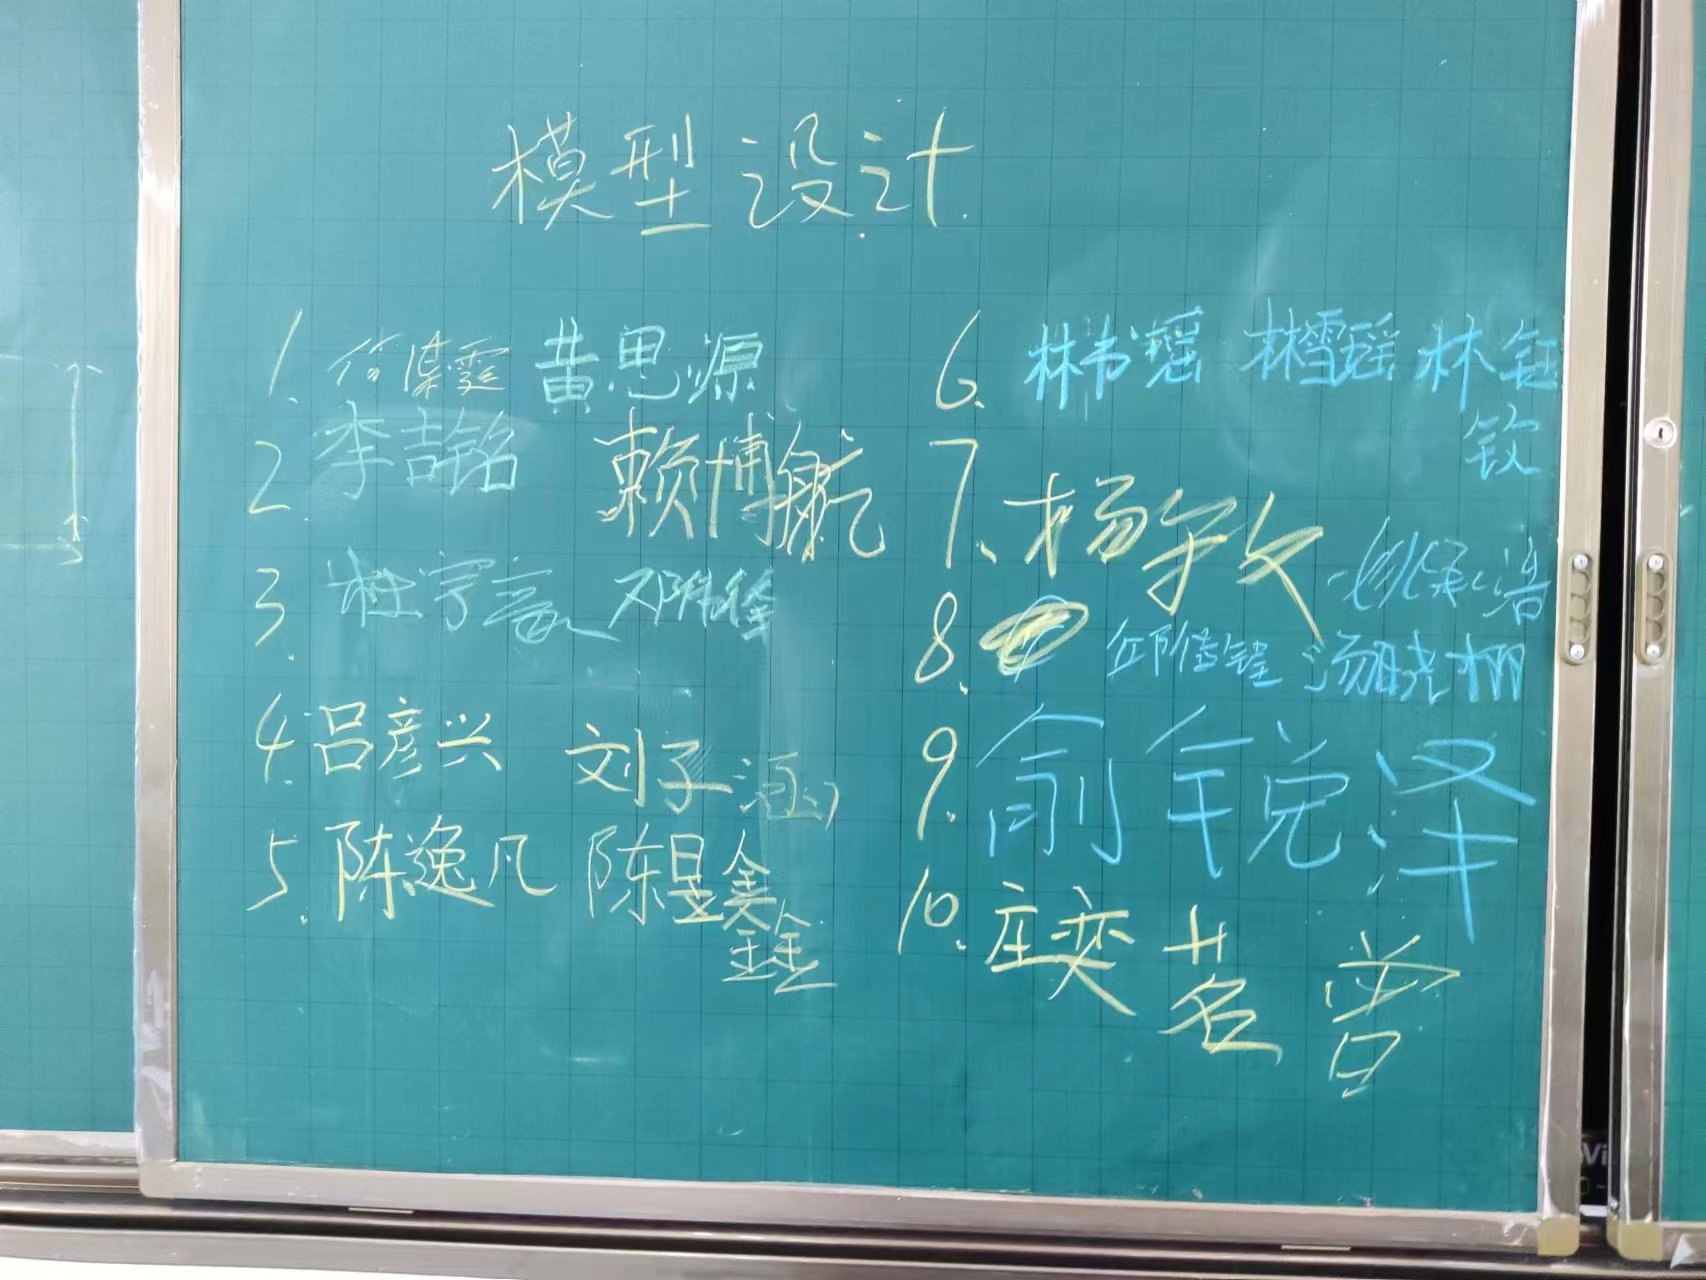 模型设计
1. 黄思源
2. 李喆铭 赖博航
3. 杜宇豪 邓
4. 吕彦兴 刘子涵
5. 陈逸凡 陈昱鑫鑫
6. 林书瑶 林雪瑶 林钰
钦
7. 杨宇欣 姚泽浩
8. 邱佳锃 汤晓栅
9. 俞锐泽
10. 庄奕茗 曾
Vi